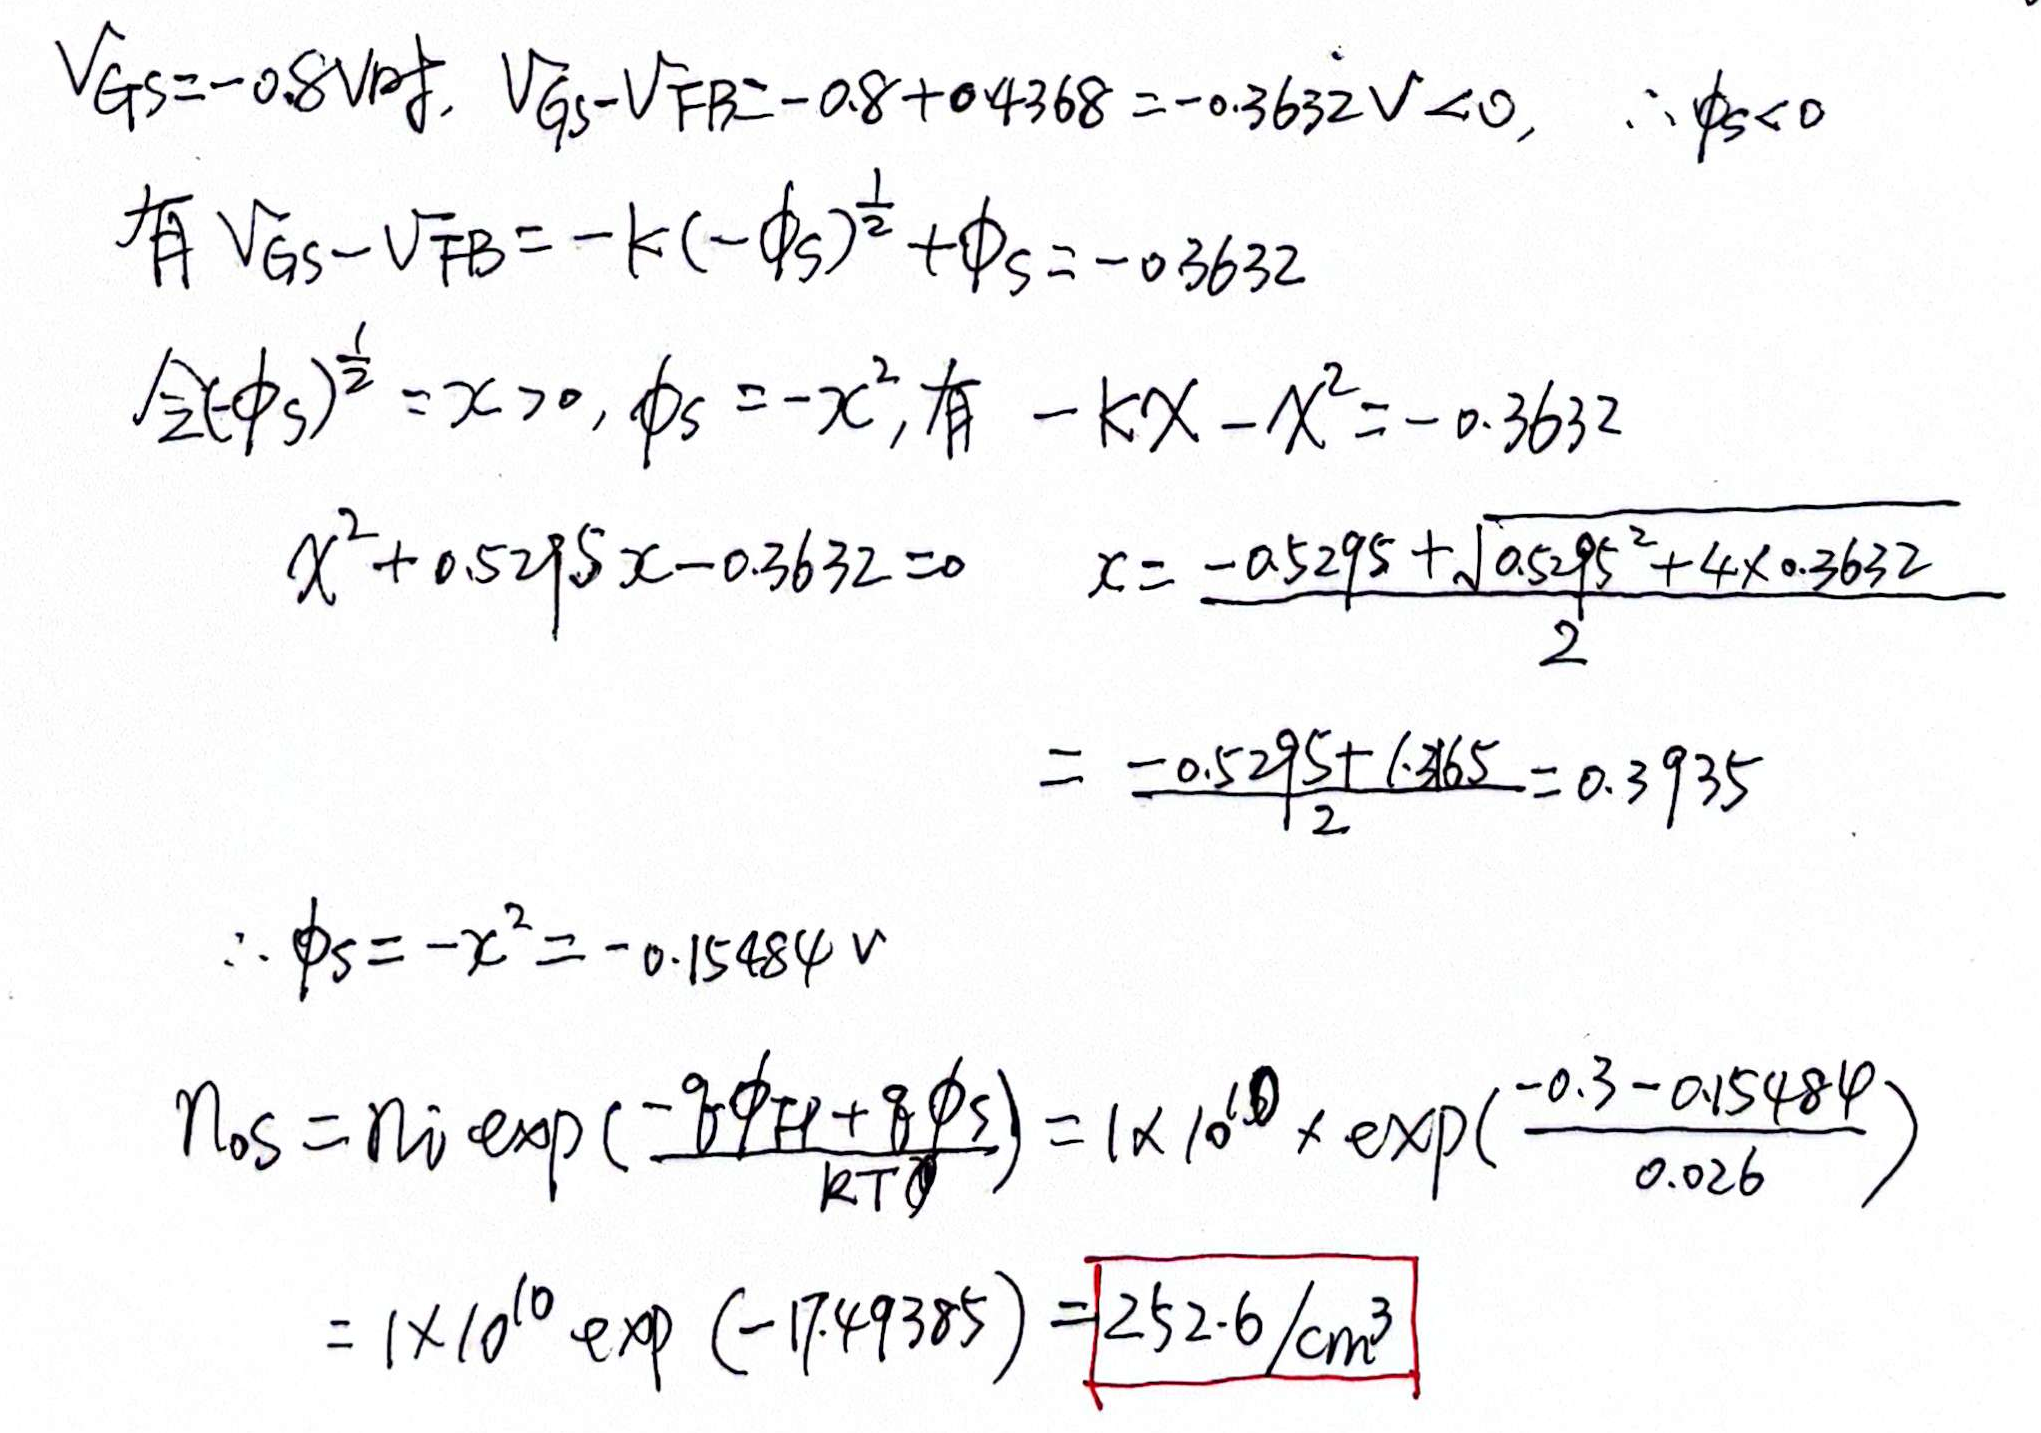 V_GS=-0.8V时, V_GS-V_FB=-0.8+0.4368=-0.3632V<0, ∴ϕ_S<0
有 V_GS-V_FB=-k(-ϕ_S)^{1/2}+ϕ_S=-03632
令(-ϕ_S)^{1/2}=x>0, ϕ_S=-x², 有 -kx-x²=-0.3632
x²+0.5295x-0.3632=0 x=\frac{-0.5295+\sqrt{0.5295²+4×0.3632}}{2}
=\frac{-0.5295+1.3165}{2}=0.3935
∴ϕ_S=-x²=-0.15484V
n_{0S}=n_i exp(\frac{-qϕ_H+qϕ_S}{kT})=1×10^{10}×exp(\frac{-0.3-0.15484}{0.026})
=1×10^{10} exp(-17.49385)=252.6/cm³